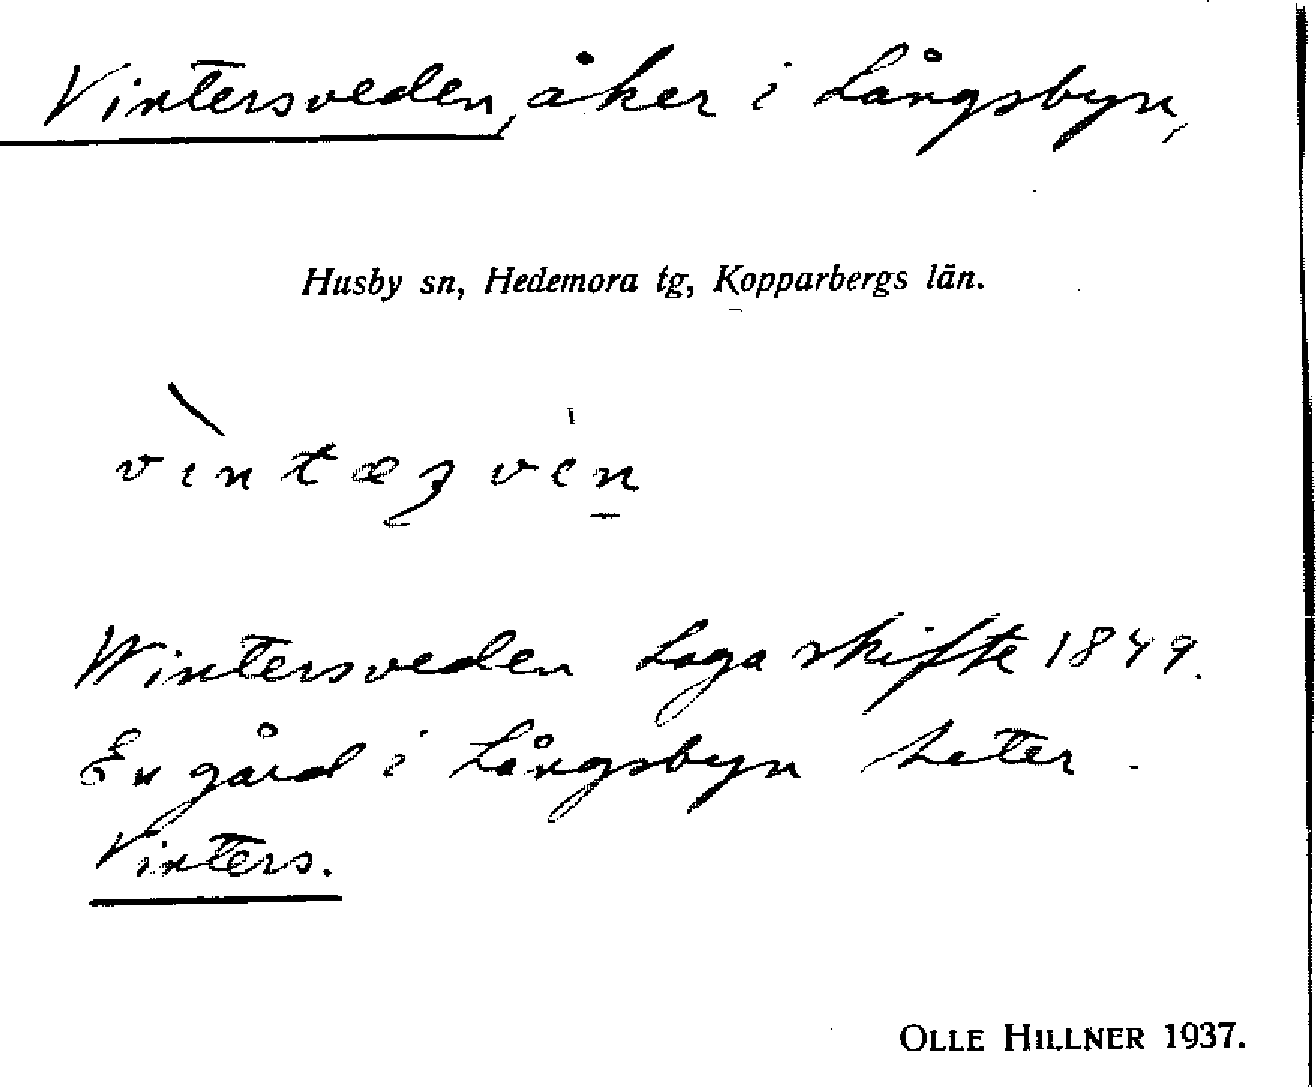 Vintersveden, åker i Långsbyn,
Husby sn, Hedemora tg, Kopparbergs län.
Wintersveden Laga skifte 1849.
En gård i Långsbyn heter
Vinters.
OLLE HILLNER 1937.